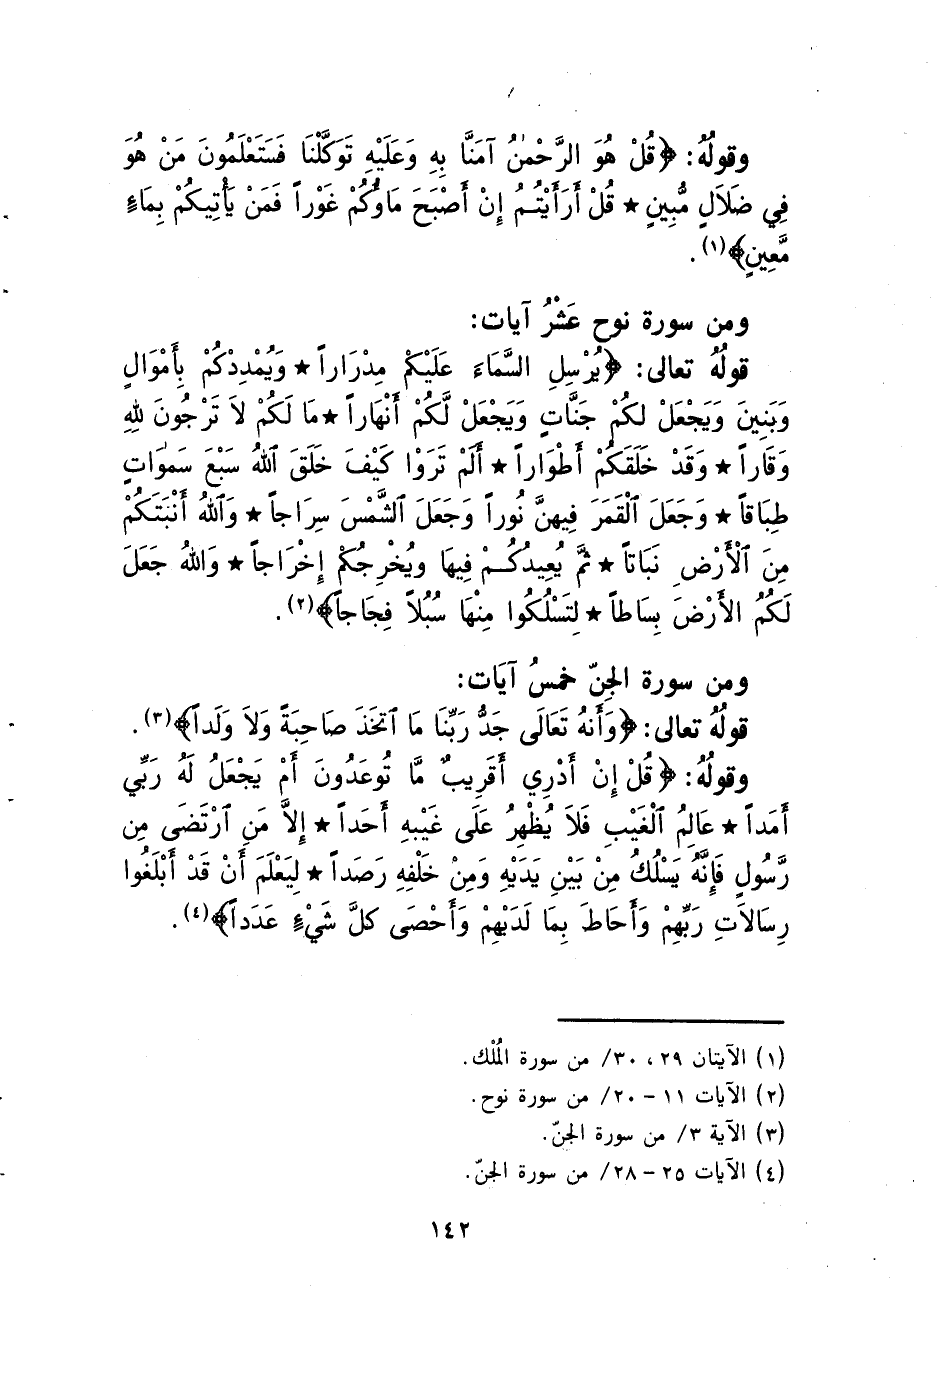 وقولُهُ: ﴿قُلْ هُوَ الرَّحْمٰنُ آمَنَّا بِهِ وَعَلَيْهِ تَوَكَّلْنَا فَسَتَعْلَمُونَ مَنْ هُوَ
فِي ضَلَالٍ مُّبِينٍ ★ قُلْ أَرَأَيْتُمْ إِنْ أَصْبَحَ مَاؤُكُمْ غَوْراً فَمَنْ يَأْتِيكُمْ بِمَاءٍ
مَّعِينٍ﴾(١) .
ومن سورة نوح عَشْرُ آيات:
قولُهُ تعالى: ﴿يُرْسِلِ السَّمَاءَ عَلَيْكُمْ مِدْرَاراً ★ وَيُمْدِدْكُمْ بِأَمْوَالٍ
وَبَنِينَ وَيَجْعَلْ لكُمْ جَنَّاتٍ وَيَجْعَلْ لَّكُمْ أَنْهَاراً ★ مَا لَكُمْ لاَ تَرْجُونَ لِلهِ
وَقَاراً ★ وَقَدْ خَلَقَكُمْ أَطْوَاراً ★ أَلَمْ تَرَوْا كَيْفَ خَلَقَ ٱللهُ سَبْعَ سَموَاتٍ
طِبَاقاً ★ وَجَعَلَ ٱلْقَمَرَ فِيهِنَّ نُوراً وَجَعَلَ ٱلشَّمْسَ سِرَاجاً ★ وَٱللهُ أَنْبَتَكُمْ
مِنَ ٱلْأَرْضِ نَبَاتاً ★ ثُمَّ يُعِيدُكُمْ فِيهَا ويُخْرِجُكُمْ إِخْرَاجاً ★ وَاللهُ جَعَلَ
لَكُمُ الأَرْضَ بِسَاطاً ★ لِتَسْلُكُوا مِنْهَا سُبُلاً فِجَاجاً﴾(٢) .
ومن سورة الجنّ خمسُ آيَات:
قولُهُ تعالى: ﴿وَأَنهُ تَعَالَى جَدُّ رَبِّنَا مَا ٱتَّخَذَ صَاحِبَةً وَلاَ وَلَداً﴾(٣) .
وقولُهُ: ﴿قُلْ إِنْ أَدْرِي أَقَرِيبٌ مَّا تُوعَدُونَ أَمْ يَجْعَلُ لَهُ رَبِّي
أَمَداً ★ عَالِمُ ٱلْغَيْبِ فَلاَ يُظْهِرُ عَلَى غَيْبِهِ أَحَداً ★ إِلاَّ مَنِ ٱرْتَضَى مِن
رَّسُولٍ فَإِنَّهُ يَسْلُكُ مِنْ بَيْنِ يَدَيْهِ وَمِنْ خَلْفِهِ رَصَداً ★ لِيَعْلَمَ أَنْ قَدْ أَبْلَغُوا
رِسَالاَتِ رَبِّهِمْ وَأَحَاطَ بِمَا لَدَيْهِمْ وَأَحْصَى كلَّ شَيْءٍ عَدَداً﴾(٤) .
(١) الآيتان ٢٩ ، ٣٠/ من سورة المُلْك.
(٢) الآيات ١١ – ٢٠/ من سورة نوح.
(٣) الآية ٣/ من سورة الجنّ.
(٤) الآيات ٢٥ – ٢٨/ من سورة الجنّ.
١٤٢